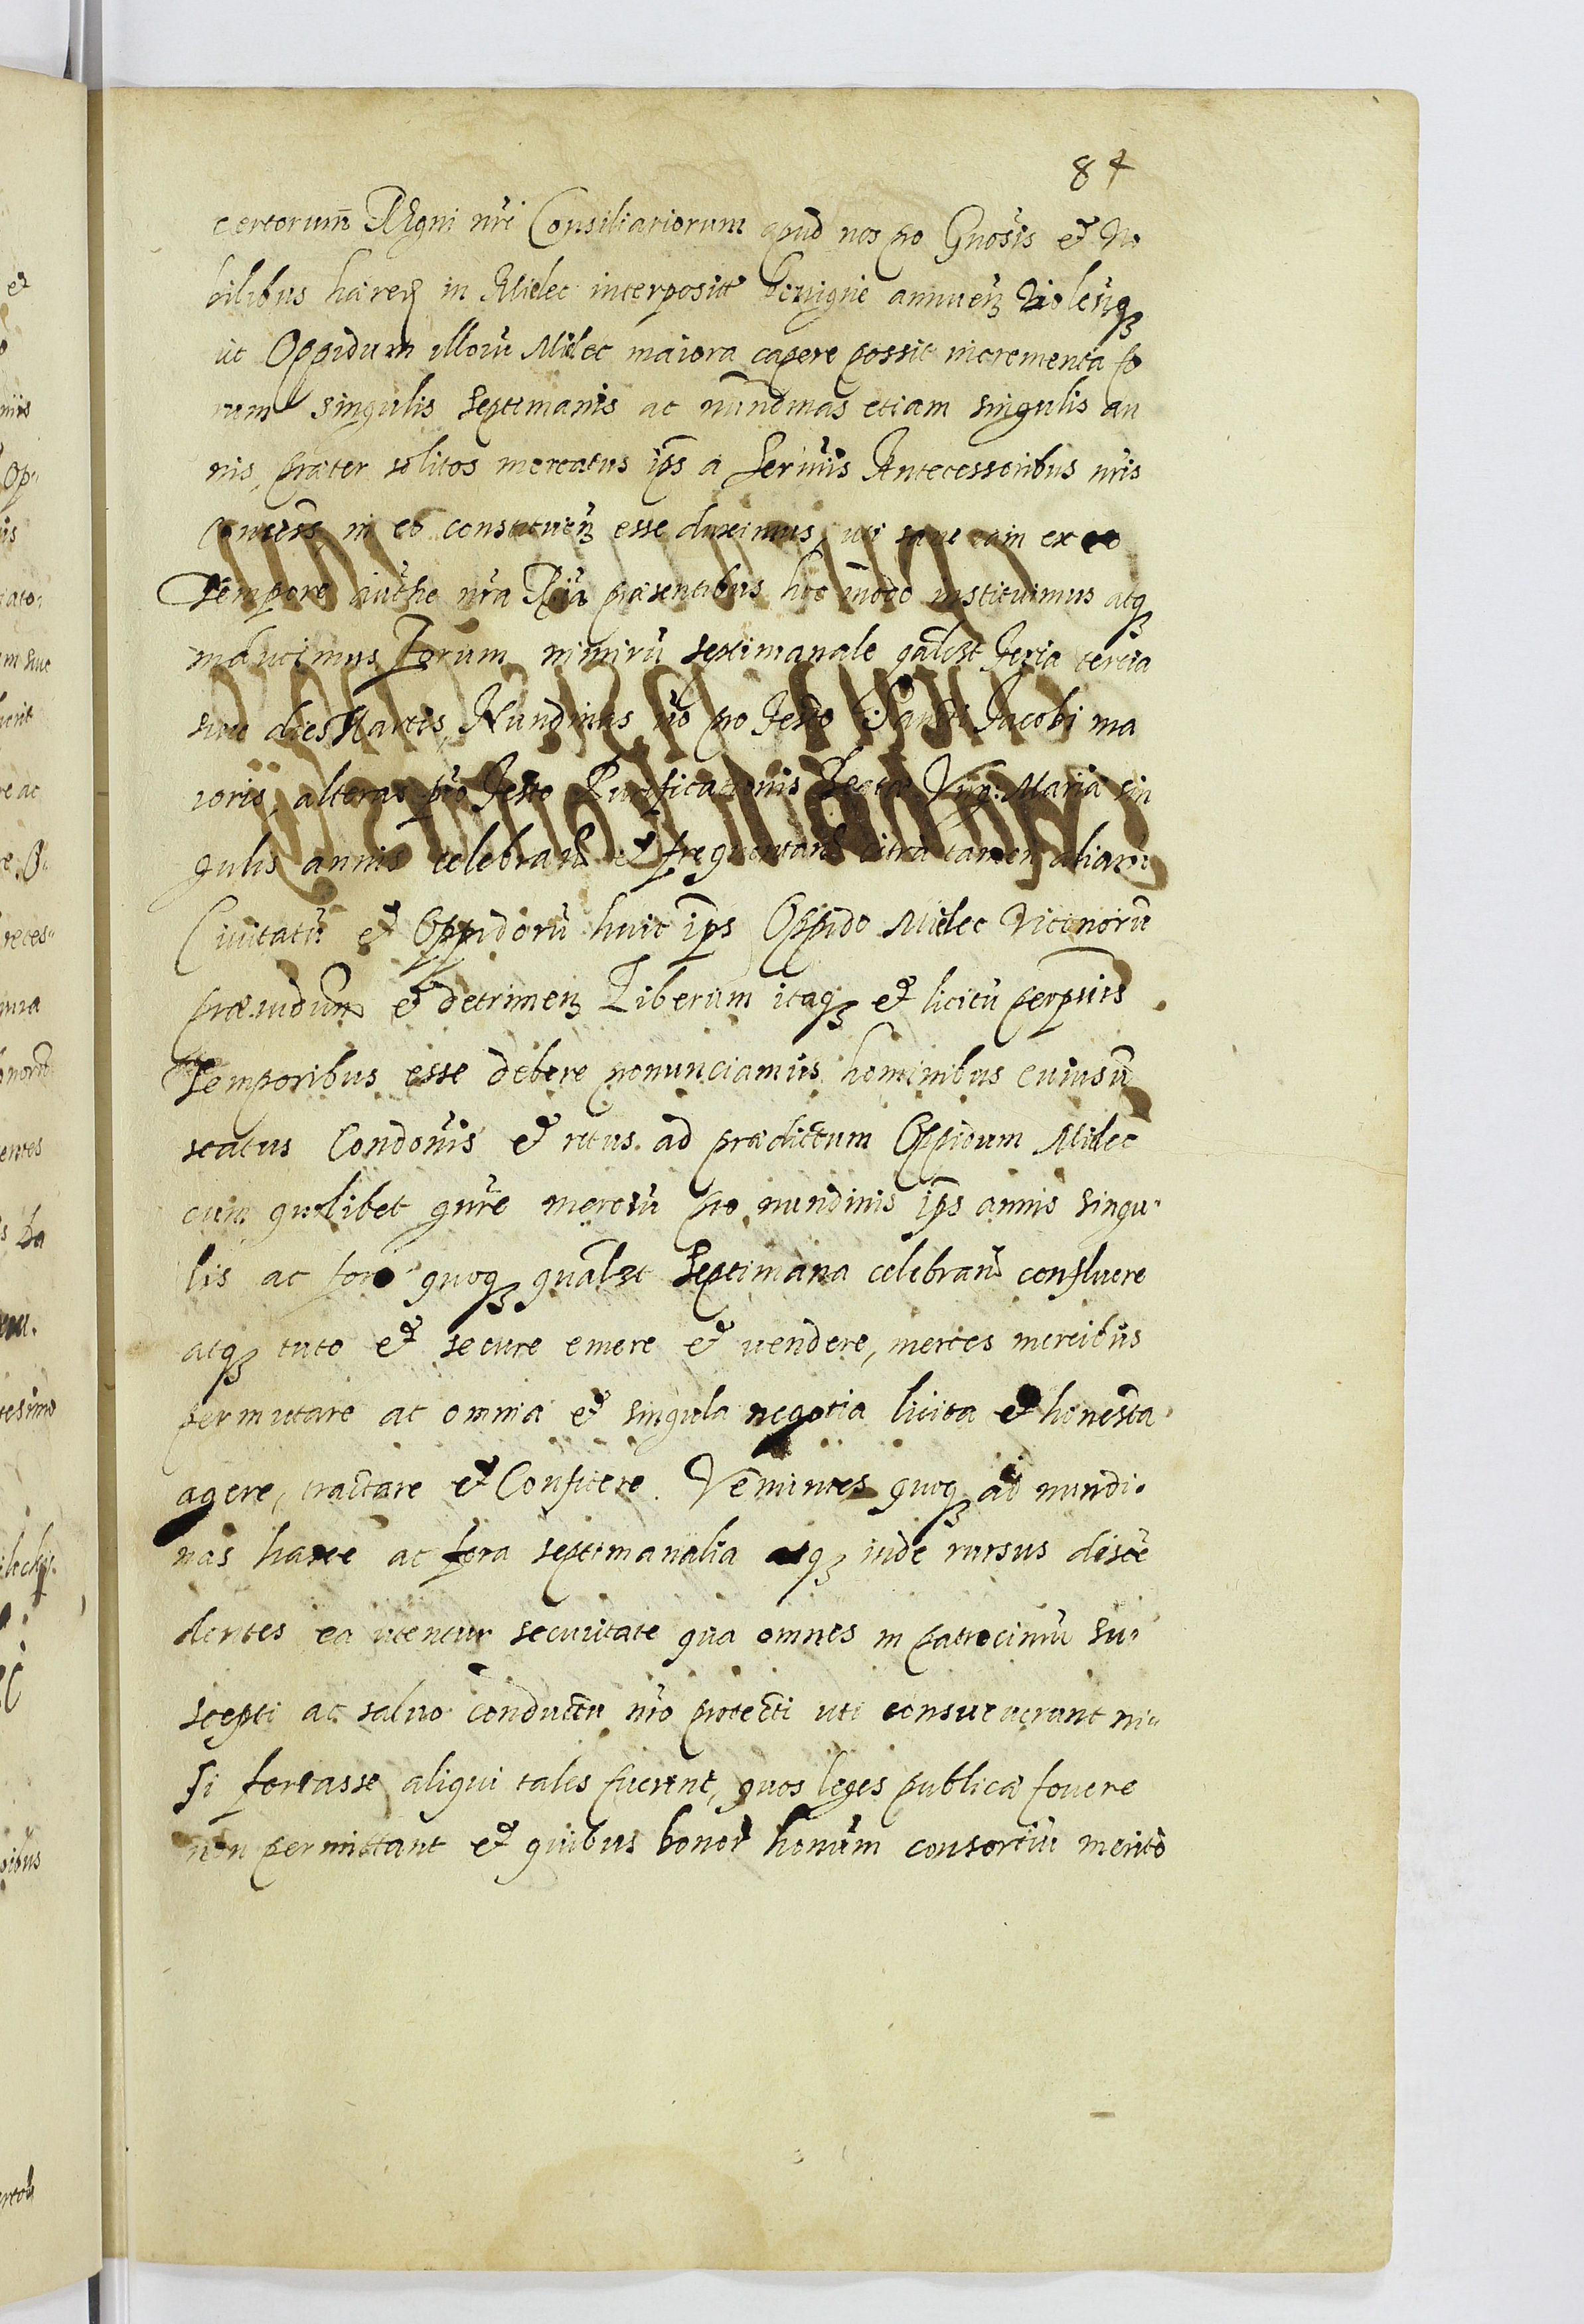 84
certorum Regni nri Consiliariorum apud nos pro Gnosis et No
bilibus hæred in Mielec interposit benigne annuen volen̄q
ut Oppidum illorū Mielec maiora capere possit incrementa fo
rum singulis septimanis ac nundinas etiam singulis an
nis, præter solitos mercatus ips a Sermis Antecessoribus nris
in eo constituen esse duximus, uti iam ex eo
tempore autho nra Ria præsentibus hoc modo instituimus atq
inducimus Forum nimirū septimanale qualbt feria tertia
sive dies Martis, Nundinas vo pro Festo Sancti Jacobi ma
ioris, alteras pro Festo Purificationis Beatæ Virg: Mariæ sin
gulis annis celebrand et frequentand citra tamen aliarū
Civitatū et Oppidorū huic ips Oppido Mielec vicinorū
præiudium et detrimen Liberum itaq et licitū perpuis
temporibus esse debere pronunciamus hominibus cuiusū
status Condonis et ritus ad prædictum Oppidum Mielec
cum qualibet gnre merciū pro nundinis ips annis singu
lis ac foro quoq qualbt Septimana celebrand confluere
atq tuto et secure emere et vendere, merces mercibus
permutare ac omnia et singula negotia licita et honesta
agere, tractare et Conficere. Venientes quoq ad nundi
nas hasce ac fora septimanalia atq inde rursus disce
dentes ea utentur securitate qua omnes in patrociniū su
scepti ac salvo conductu nro protecti uti consueverunt ni
si fortasse aliqui tales fuerint, quos leges publicæ fovere
non permittant et quibus bonor honum consortiū merito